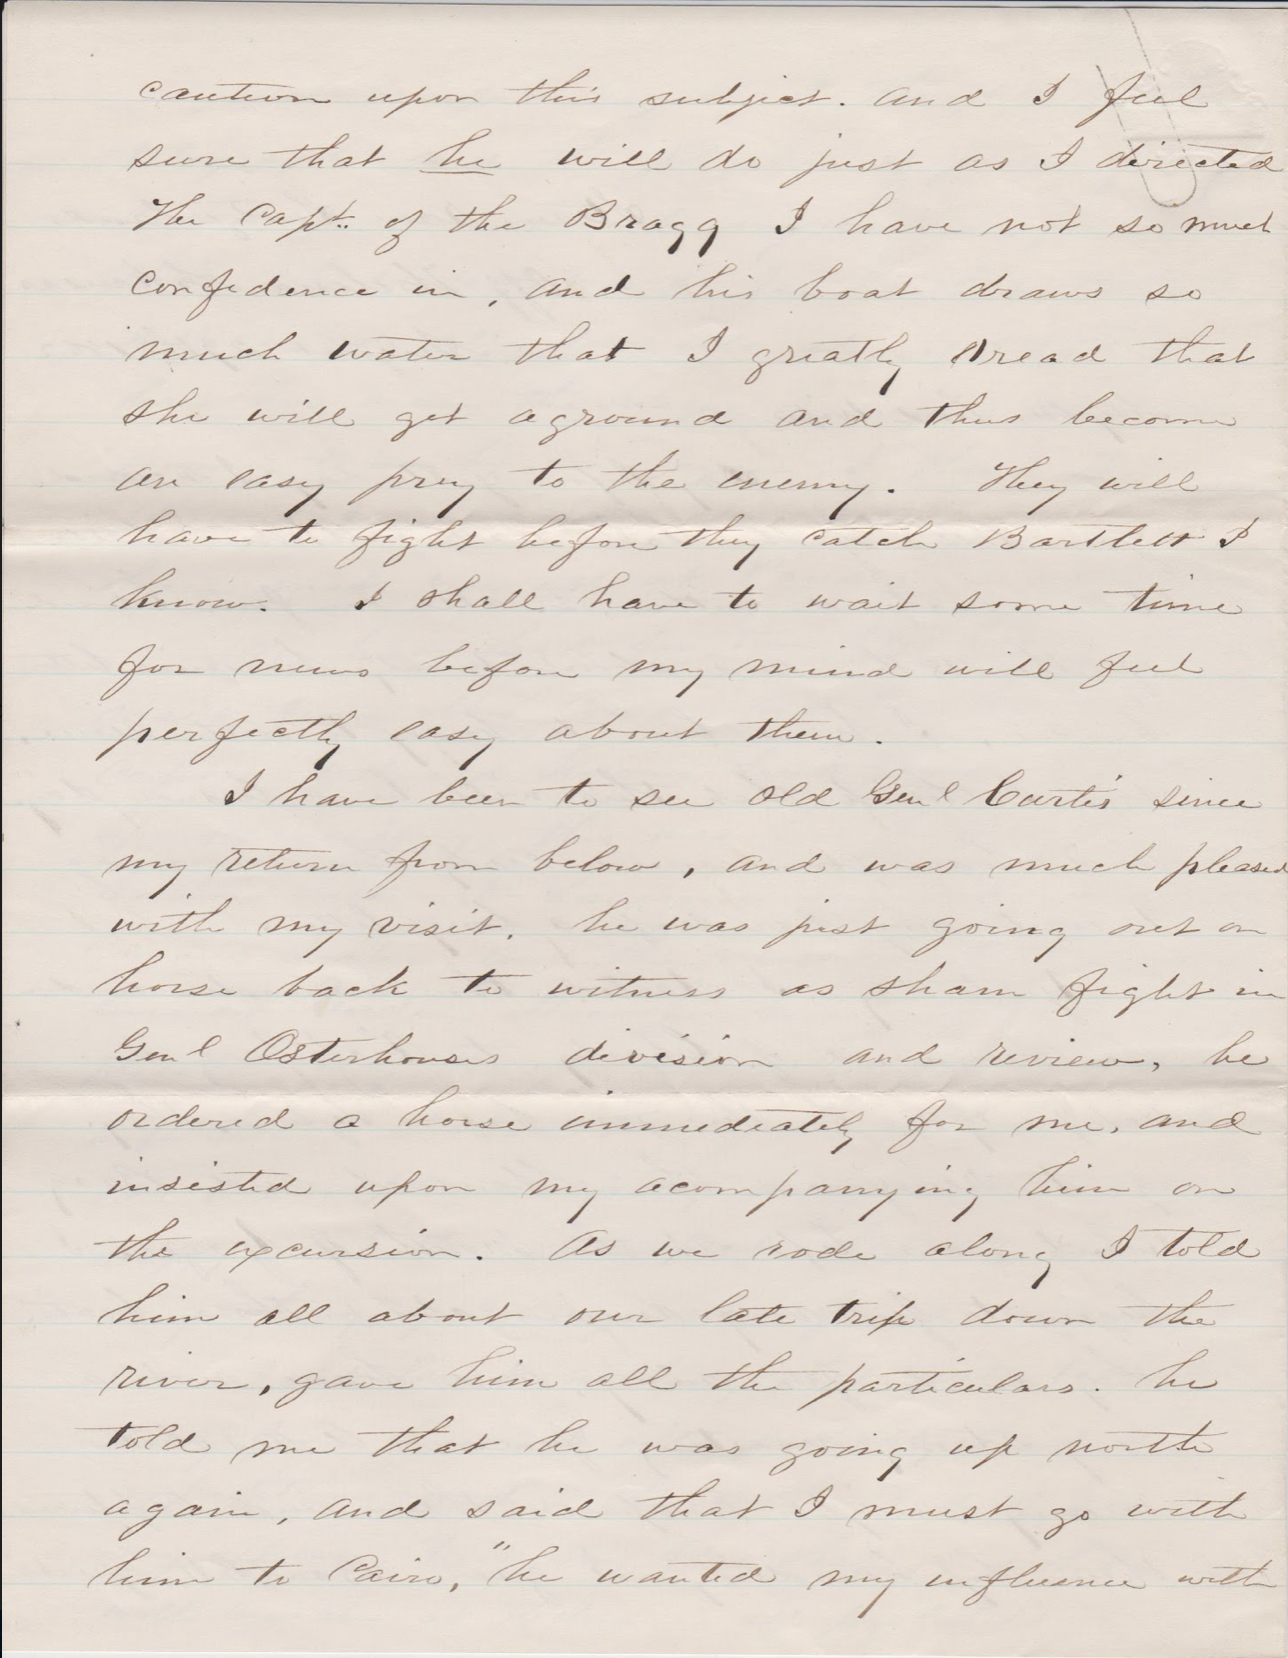 caution upon this subject. and I feel
sure that he will do just as I directed
The Capt. of the Bragg I have not so much
confidence in, and his boat draws so
much water that I greatly dread that
she will get aground and thus become
an easy prey to the enemy. They will
have to fight before they catch Bartlett I
know. I shall have to wait some time
for news before my mind will feel
perfectly easy about them.
I have been to see old Genl Curtis since
my return from below, and was much pleased
with my visit. he was just going out on
horse back to witness as sham fight in
Genl Osterhouses division and review, he
ordered a horse immediately for me, and
insisted upon my acompanying him on
the excursion. As we rode along I told
him all about our late trip down the
river, gave him all the particulars. he
told me that he was going up north
again, and said that I must go with
him to Cairo, "he wanted my influence with